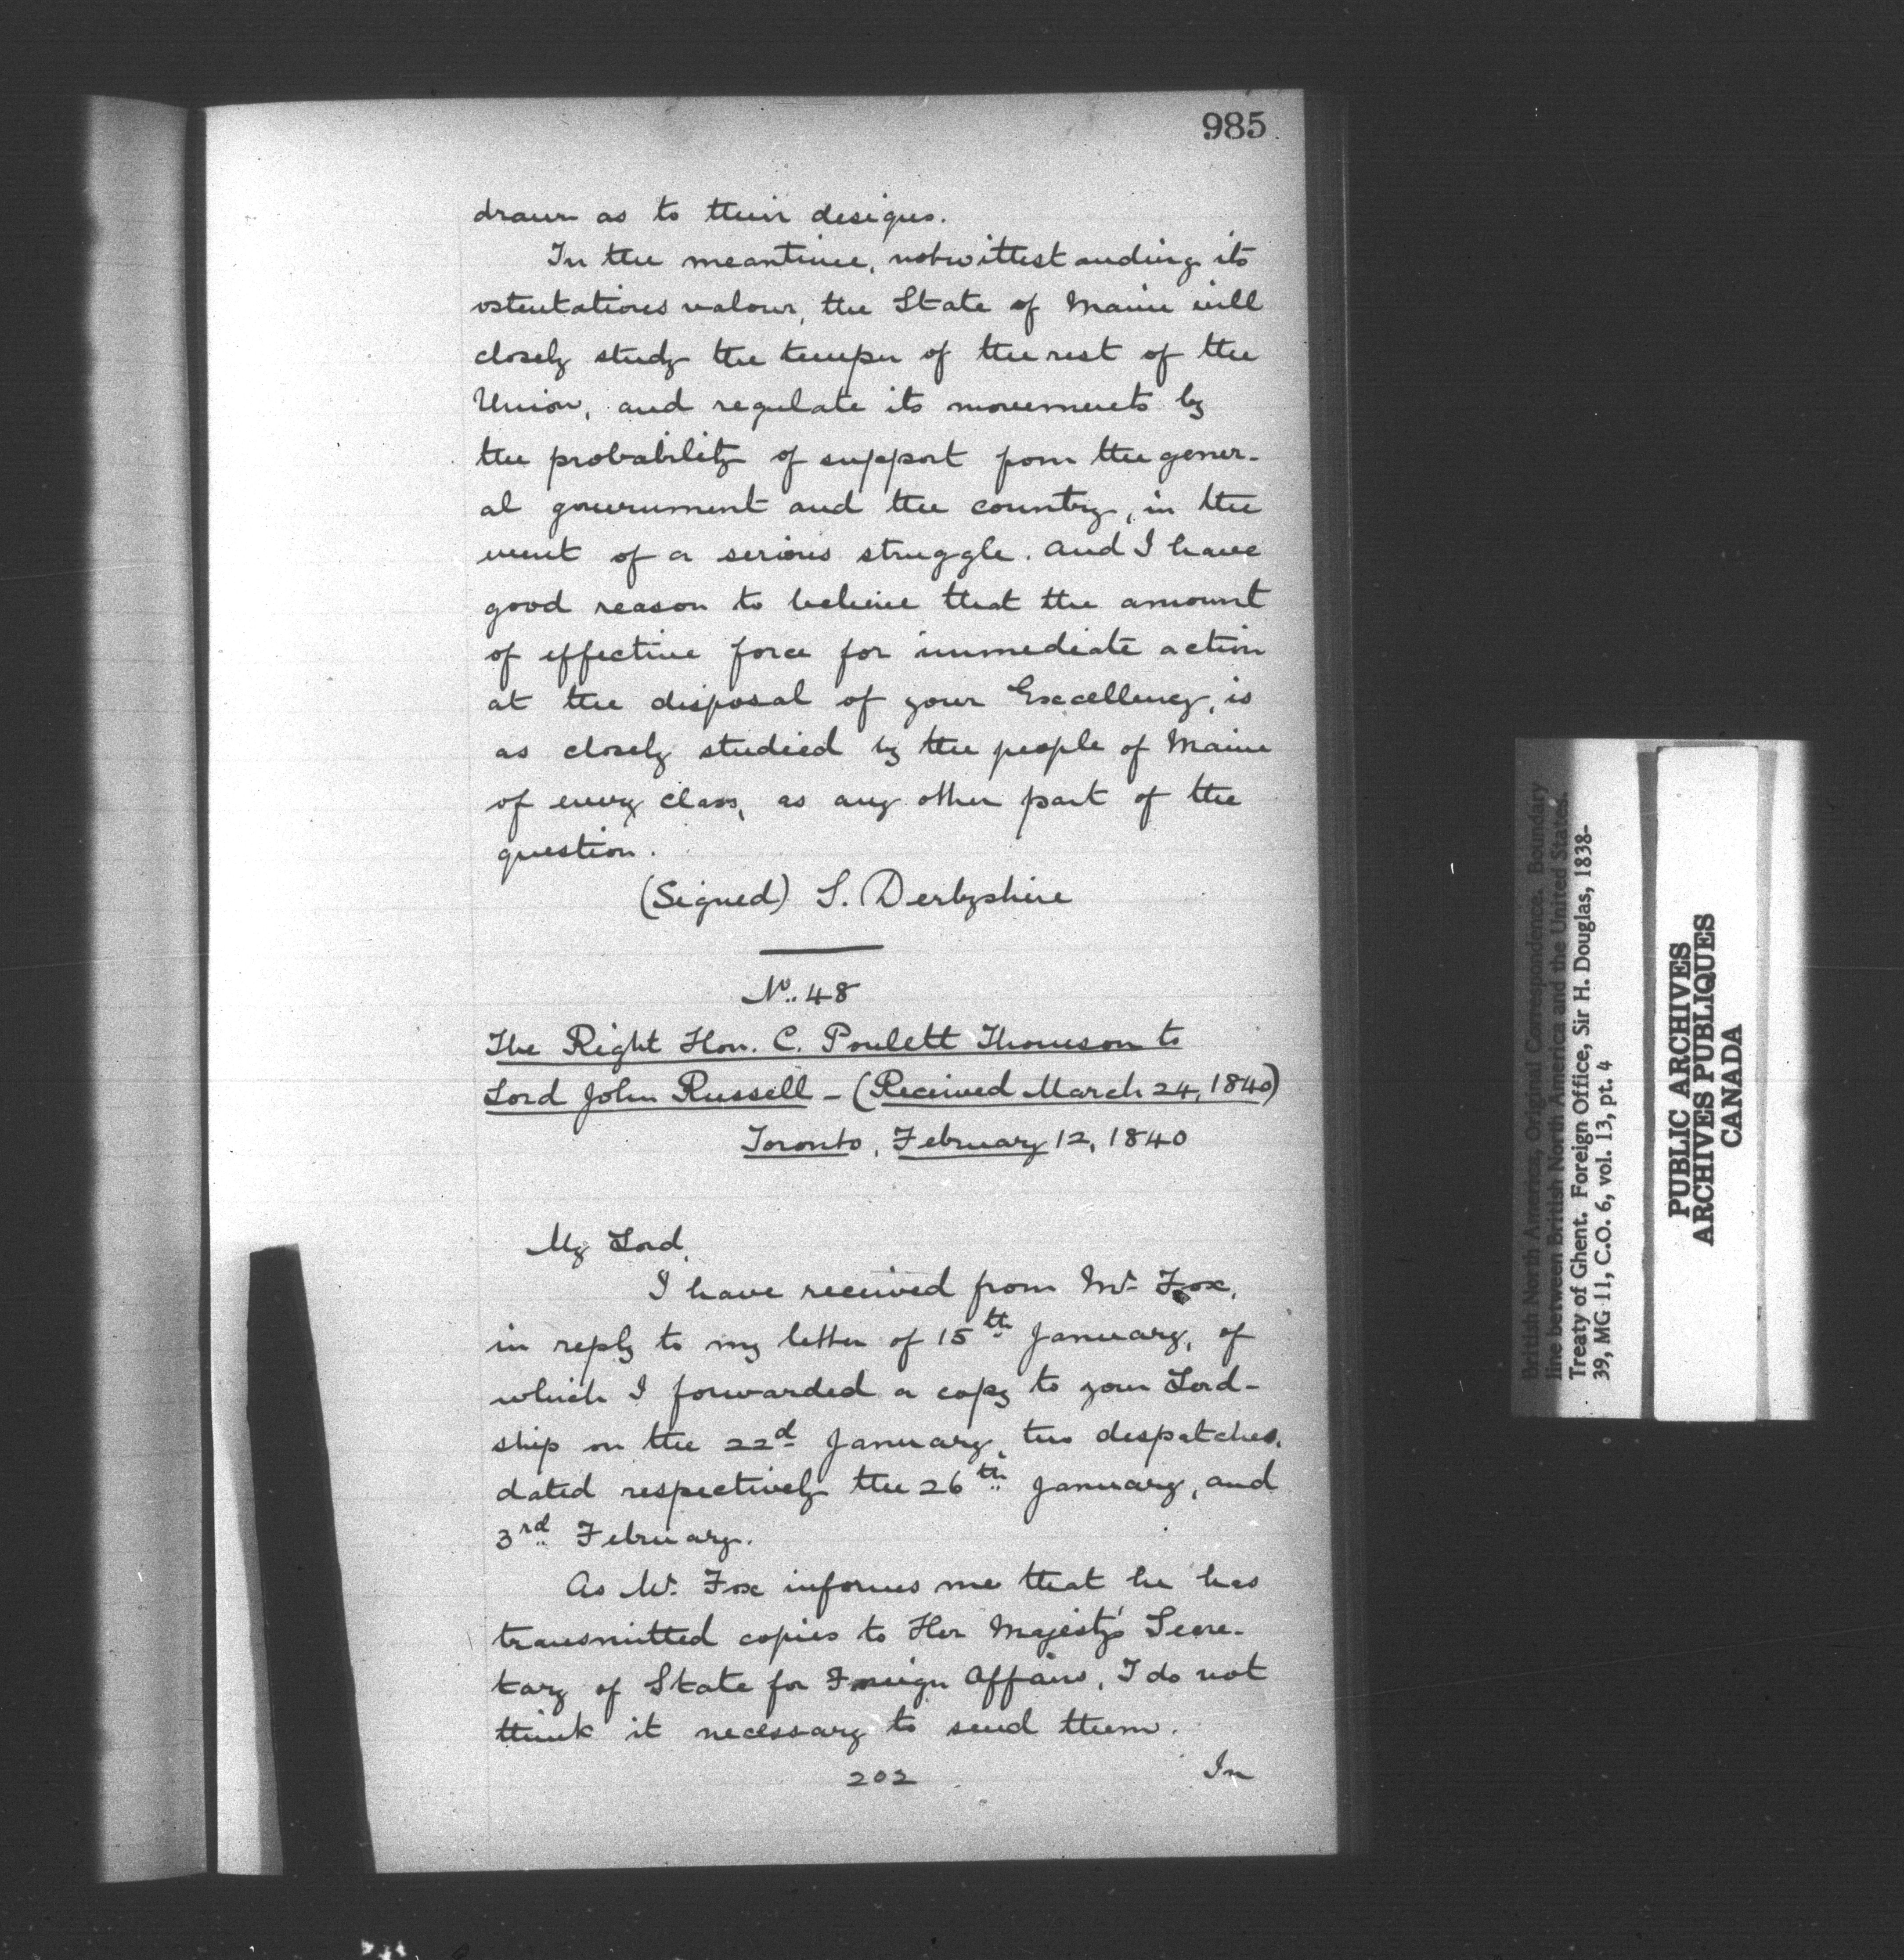 985
drawn as to their designs.
In the meantime, notwithstanding its
ostentatious valour, the State of Maine will
closely study the temper of the rest of the
Union, and regulate its movements by
the probability of support from the gener-
al government and the country, in the
event of a serious struggle. And I have
good reason to believe that the amount
of effective force for immediate action
at the disposal of your Excellency, is
as closely studied by the people of Maine
of every class, as any other part of the
question.
(Signed) S. Derbyshire
No. 48
The Right Hon. C. Poulett Thomson to
Lord John Russell - (Received March 24, 1840)
Toronto, February 12, 1840
My Lord,
I have received from Mr. Fox,
in reply to my letter of 15th January, of
which I forwarded a copy to your Lord-
ship on the 22d January, two despatches,
dated respectively the 26th January, and
3rd February.
As Mr. Fox informs me that he has
transmitted copies to Her Majesty's Secre-
tary of State for Foreign Affairs, I do not
think it necessary to send them.
202
In
British North America, Original Correspondence. Boundary
line between British North America and the United States.
Treaty of Ghent. Foreign Office, Sir H. Douglas, 1838-
39, MG 11, C.O. 6, vol. 13, pt. 4
PUBLIC ARCHIVES
ARCHIVES PUBLIQUES
CANADA